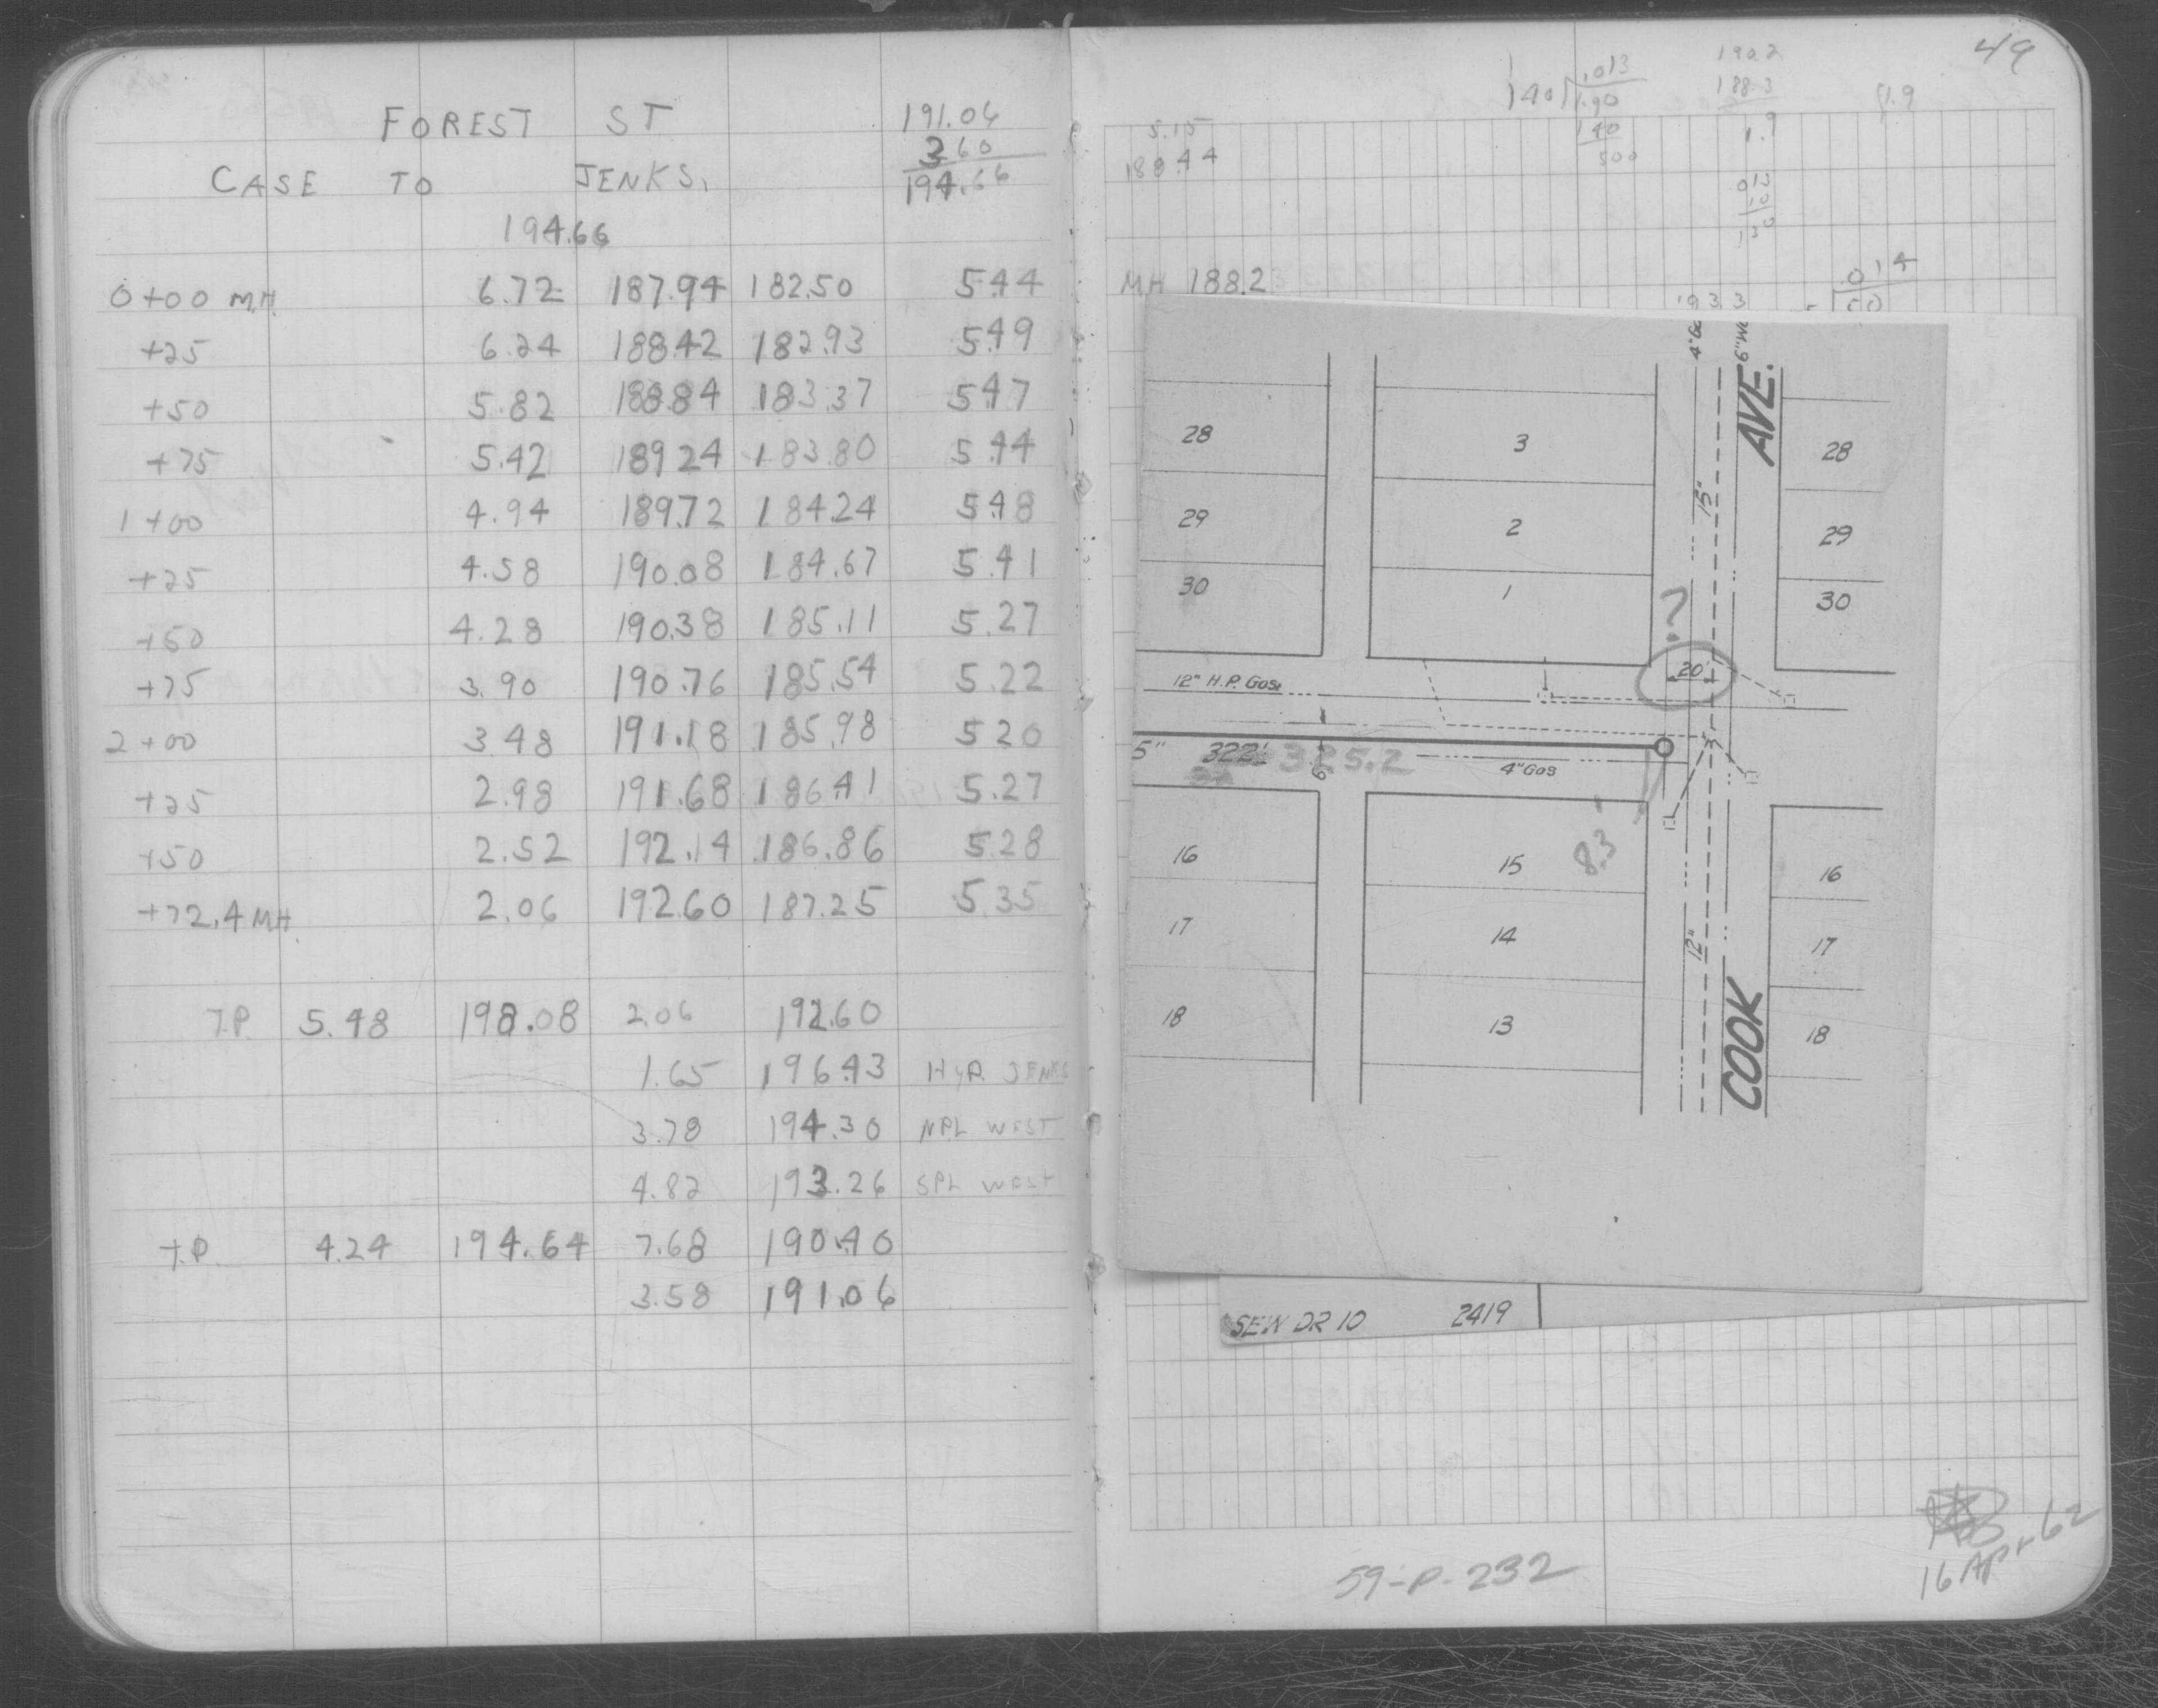 FOREST ST
CASE TO JENKS.
191.06
3 60
194.66
194.66
0+00 M.H. 6.72 187.94 182.50 5.44
+25 6.24 188.42 182.93 5.49
+50 5.82 188.84 183.37 5.47
+75 5.42 189.24 183.80 5.44
1+00 4.94 189.72 184.24 5.48
+25 4.58 190.08 184.67 5.41
+50 4.28 190.38 185.11 5.27
+75 3.90 190.76 185.54 5.22
2+00 3.48 191.18 185.98 5.20
+25 2.98 191.68 186.41 5.27
+50 2.52 192.14 186.86 5.28
+72.4 MH. 2.06 192.60 187.25 5.35
T.P. 5.48 198.08 2.06 192.60
1.65 196.43 HYD. JENKS
3.78 194.30 NPL WEST
4.82 193.26 SPL WEST
T.P. 4.24 194.64 7.68 190.40
3.58 191.06
49
.013
140 1.90
140
500
190.2
188.3
1.9
1.9
5.15
188.44
013
10
130
MH 188.2
.014
193.3
4"Ga
6"Wa
AVE.
28 3 28
15"
29 2 29
30 1 30
?
20'
12" H.P. Gas
5" 322' 325.2
6"
4"Gas
8.3
16 15 16
17 14 17
12"
18 13 18
COOK
SEW DR 10 2419
59-P-232
16 Apr 62